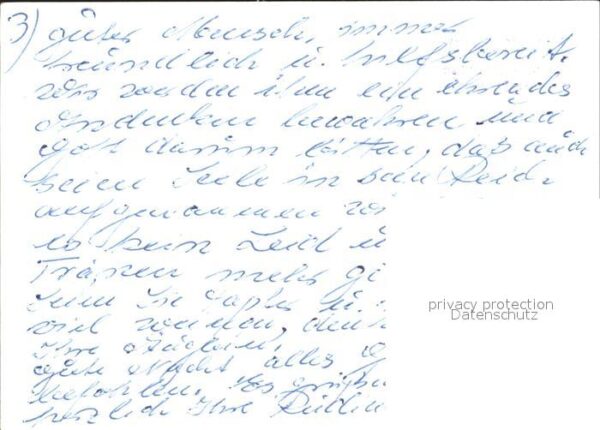 3) guter Mensch, immer
freundlich u. hilfsbereit.
Wir werden ihm ein ehrendes
Andenken bewahren und
Gott darum bitten, daß auch
seine Seele in sein Reich
aufgenommen wi
wo kein Leid u
Tränen mehr gi
Seien Sie tapfer u.
viel denn
Ihre
Gute Nacht alles G
befohlen. Es grüßt
herzlich Ihre
privacy protection
Datenschutz